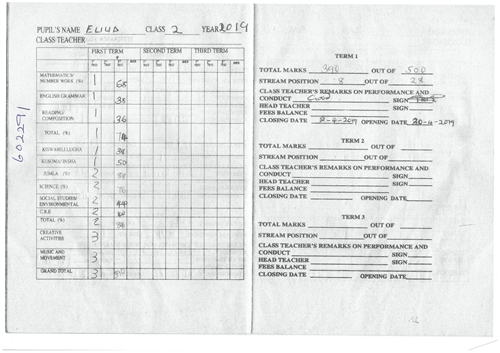 PUPIL'S NAME ELIUD CLASS 2 YEAR 2019
CLASS TEACHER
FIRST TERM SECOND TERM THIRD TERM
MATHEMATICS/
NUMBER WORK (%) 1 68
ENGLISH GRAMMAR 1 38
READING/
COMPOSITION 1 36
TOTAL (%) 1 74
KISWAHILI LUGHA 1 38
KUSOMA/INSHA 1 50
JUMLA (%) 2
SCIENCE (%) 2
SOCIAL STUDIES/
ENVIRONMENTAL 2
C.R.E 2
TOTAL (%) 2
CREATIVE
ACTIVITIES 3
MUSIC AND
MOVEMENT 3
GRAND TOTAL 3 390
602291
TERM 1
TOTAL MARKS 390 OUT OF 500
STREAM POSITION 8 OUT OF 28
CLASS TEACHER'S REMARKS ON PERFORMANCE AND
CONDUCT Good SIGN
HEAD TEACHER SIGN
FEES BALANCE
CLOSING DATE OPENING DATE
TERM 2
TOTAL MARKS OUT OF
STREAM POSITION OUT OF
CLASS TEACHER'S REMARKS ON PERFORMANCE AND
CONDUCT SIGN
HEAD TEACHER SIGN
FEES BALANCE
CLOSING DATE OPENING DATE
TERM 3
TOTAL MARKS OUT OF
STREAM POSITION OUT OF
CLASS TEACHER'S REMARKS ON PERFORMANCE AND
CONDUCT SIGN
HEAD TEACHER SIGN
FEES BALANCE
CLOSING DATE OPENING DATE